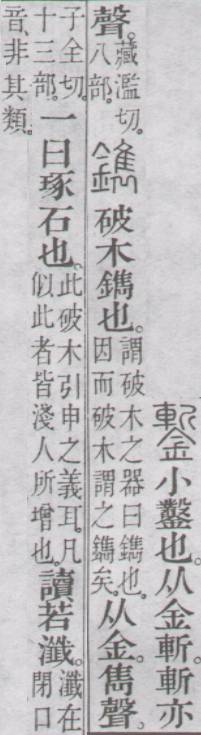 鏨小鑿也。从金斬。斬亦
聲。藏濫切。八部。鐫破木鐫也。謂破木之器曰鐫也。因而破木謂之鐫矣。从金雋聲。
子全切。十三部。一曰琢石也。此破木引申之義耳。凡似此者皆淺人所增也。讀若瀸。瀸在閉口
音、非其類。